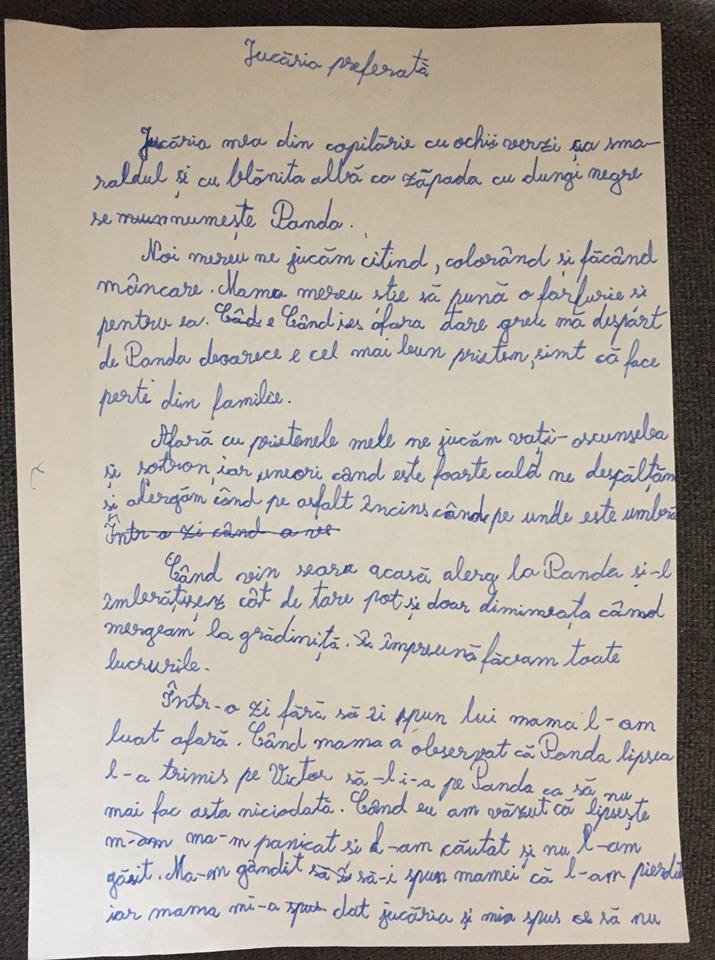 Jucăria preferată
Jucăria mea din copilărie cu ochii verzi ca sma-
raldul și cu blănita albă ca zăpada cu dungi negre
se numește Panda.
Noi mereu ne jucăm citind, colorând și făcând
mâncare. Mama mereu știe să pună o farfurie si
pentru ea. Când ies afara tare greu mă despart
de Panda deoarece e cel mai bun prieten, simt că face
perte din familie.
Afară cu prietenele mele ne jucăm vați-ascunselea
și șotron, iar uneori când este foarte cald ne descălțăm
și alergăm când pe asfalt încins când pe unde este umbră
Într-o zi când a
Când vin seara acasă alerg la Panda și-l
îmbrățișez cât de tare pot și doar dimineața când
mergeam la grădiniță. împreună făceam toate
lucrurile.
Într-o zi fără să îi spun lui mama l-am
luat afară. Când mama a observat că Panda lipsea
l-a trimis pe Victor să-l i-a pe Panda ca să nu
mai fac asta niciodată. Când eu am văzut că lipsește
m-am ma-m panicat si l-am căutat și nu l-am
găsit. Ma-m gândit să să-i spun mamei că l-am pierdut
iar mama mi-a spus dat jucăria și mia spus ce să nu